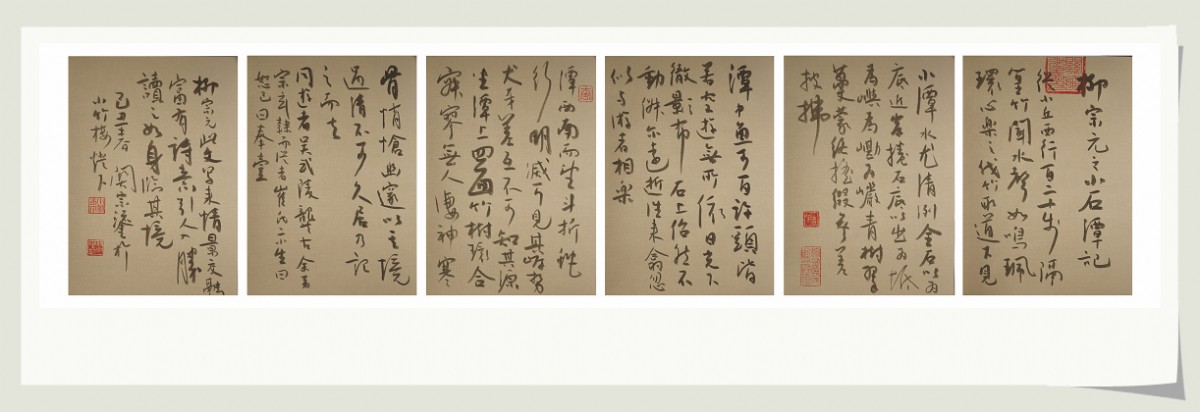 柳宗元之小石潭記
從小丘西行百二十步隔
篁竹聞水聲如鳴珮
環心樂之伐竹取道下見
小潭水尤清冽全石以為
底近岸捲石底以出為坻
為嶼為嵁為巖青樹翠
蔓蒙絡搖綴參差
披拂
潭中魚可百許頭皆
若空遊無所依日光下
徹影布石上佁然不
動俶尔遠逝往来翕忽
似与游者相樂
潭西南而望斗折蛇
行明滅可見其岸勢
犬牙差互不可知其源
坐潭上四面竹樹環合
寂寥無人淒神寒
骨悄愴幽邃以其境
過清不可久居乃記
之而去
同遊者吳武陵龔古余弟
宗玄隸而從者崔氏二小生曰
恕己曰奉壹
柳宗元此文寫來情景交融
富有詩意引人入勝
讀之如身臨其境
己丑春 關宗
小竹樓